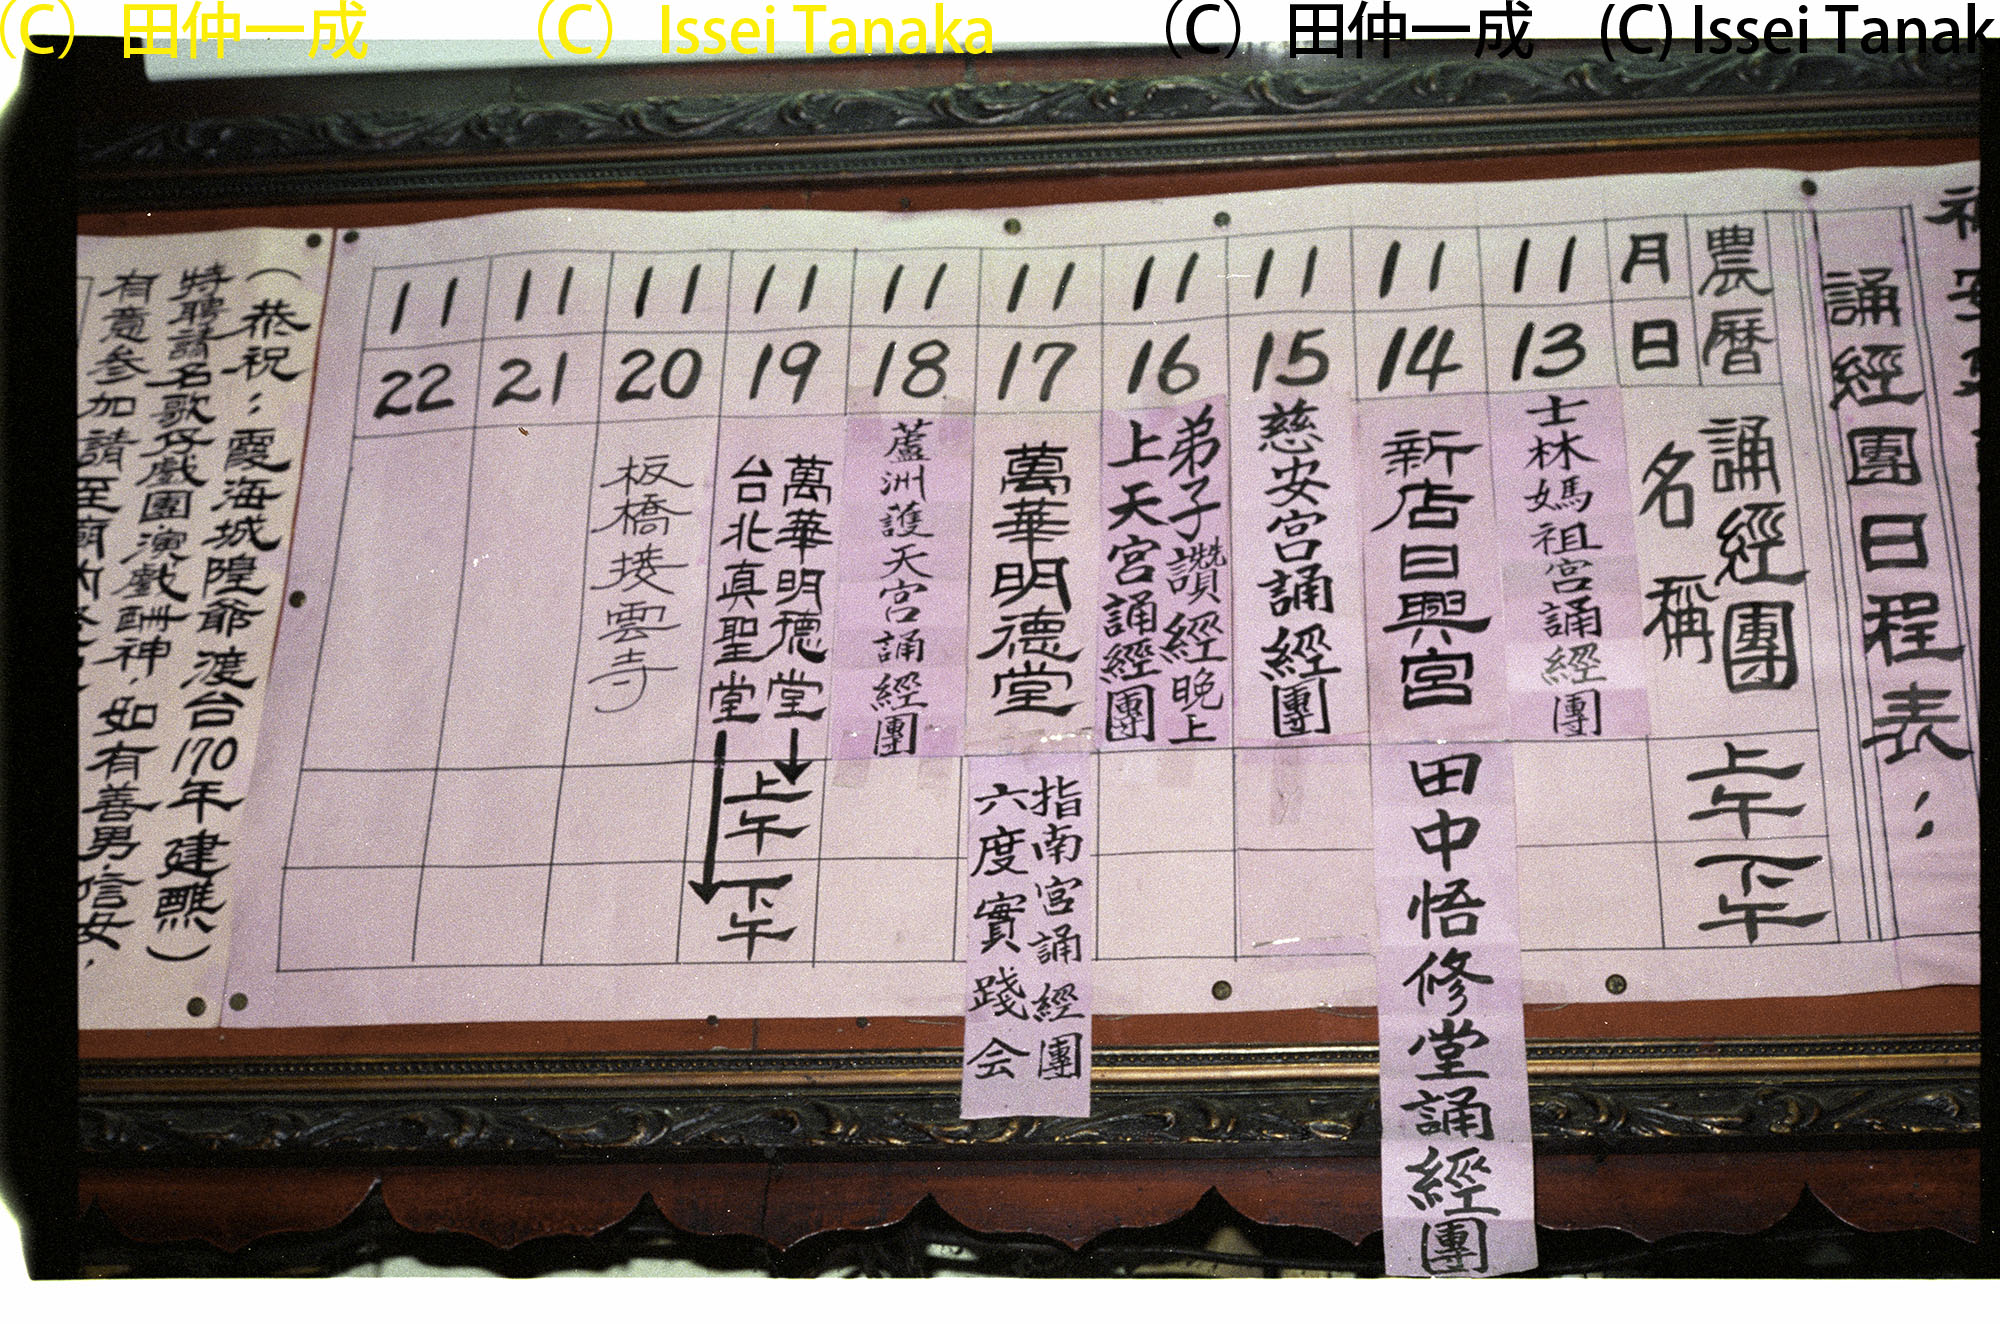 (C) 田仲一成 (C) Issei Tanaka (C) 田仲一成 (C) Issei Tanak
誦經團日程表：
農曆
月 日
誦經團名稱
上午
下午
11 13
士林媽祖宮誦經團
11 14
新店日興宮
田中悟修堂誦經團
11 15
慈安宮誦經團
11 16
弟子讚經晚上
上天宮誦經團
11 17
萬華明德堂
指南宮誦經團
六度實踐会
11 18
蘆洲護天宮誦經團
11 19
萬華明德堂
台北真聖堂
上午
下午
11 20
板橋接雲寺
11 21
11 22
（恭祝：霞海城隍爺渡台170年建醮）
特聘請名歌仔戲團演戲酬神，如有善男信女，
有意參加請至廟內